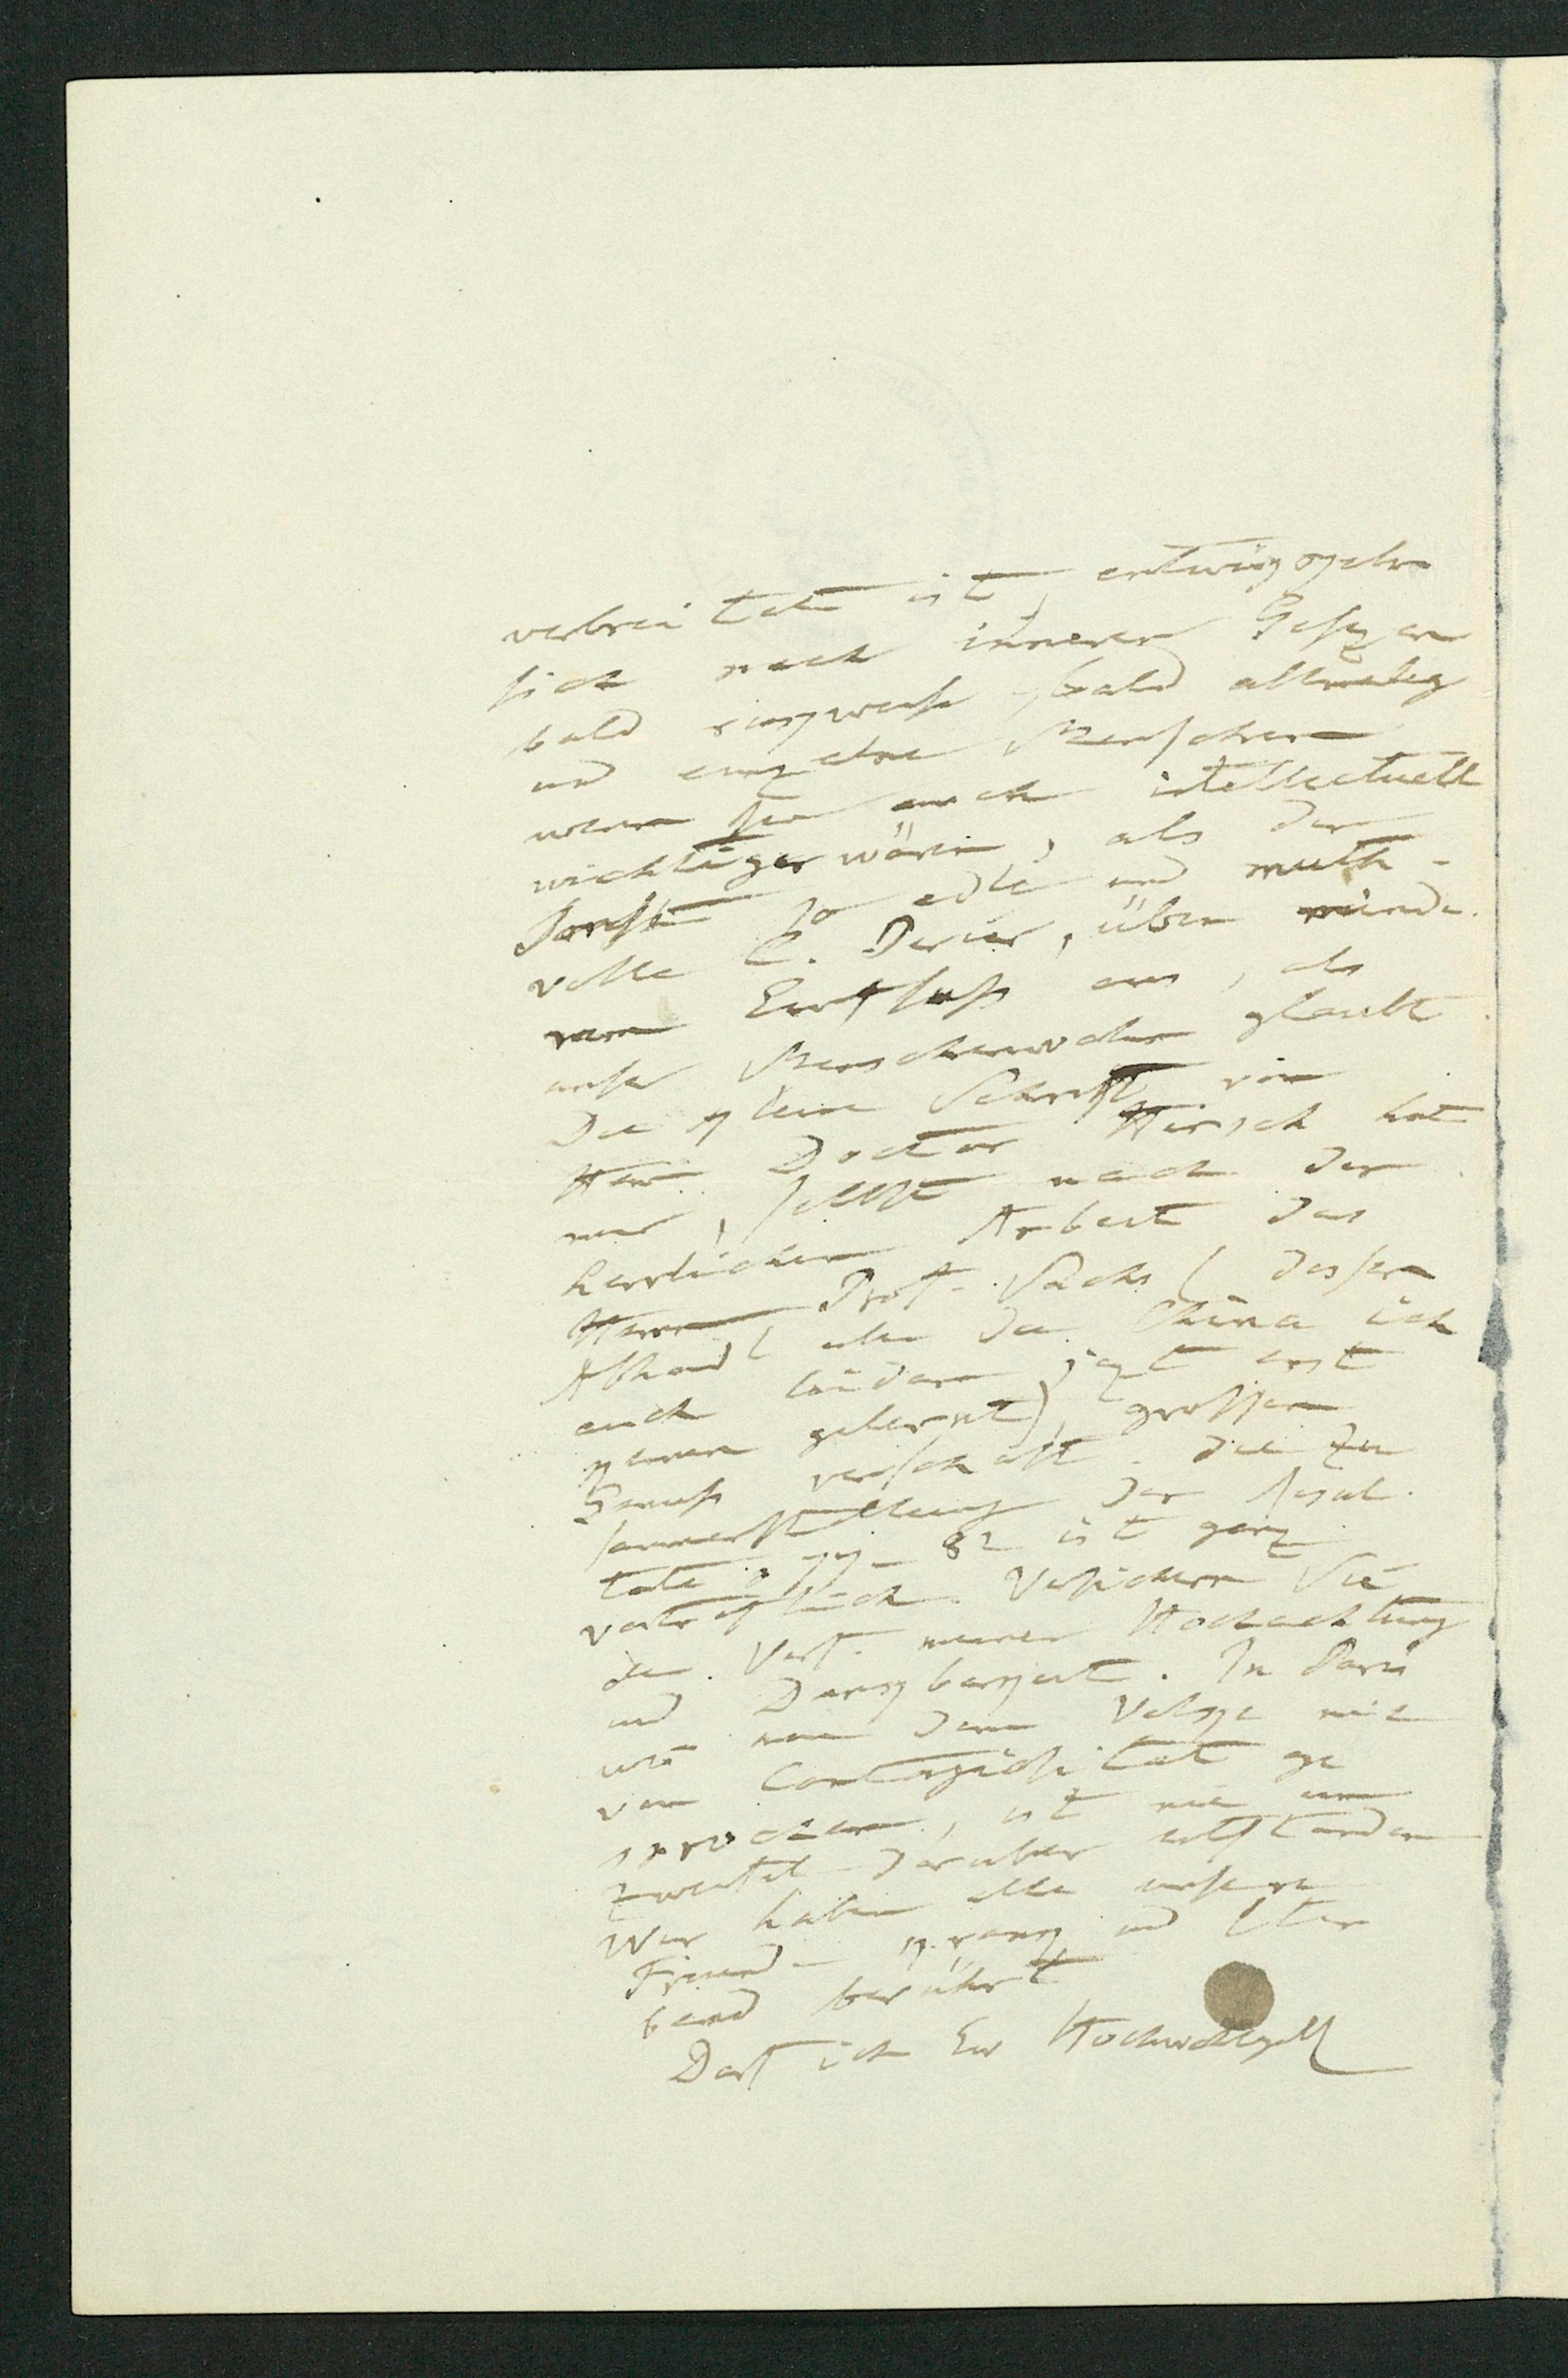 verbreitet ist, entwikkeln
sich nach inneren Gesezen
bald ruckweise, bald allmälig
und einzelne Menschen
wenn sie auch intellectuell
wichtiger wären, als der
sonst so edle und muth-
volle C. Perier, üben minde-
ren Einfluß aus, als
unser Menschenwahn glaubt.
Die kleine Schrift von
Herrn Doctor Hirsch hat
mir, selbst nach der
herrlichen Arbeit des
Herrn Prof. Sachs (dessen
Abhandl über die China ich
auch leider jezt erst
kennen gelernt), grossen
Genuß verschaft. Die Zu
sammenstellung der Resul-
tate p 77-82 ist ganz
vortreflich. Versichern Sie
den Verf. meiner Hochachtung
und Dankbarkeit. In Paris
wo man dem Volke nie
von Contagiosität ge
sprochen, ist nie ein
Zweifel darüber entstanden
Wir haben alle unsere
Freunde krank und ster
bend berührt
Darf ich Ew Hochwohlgeb